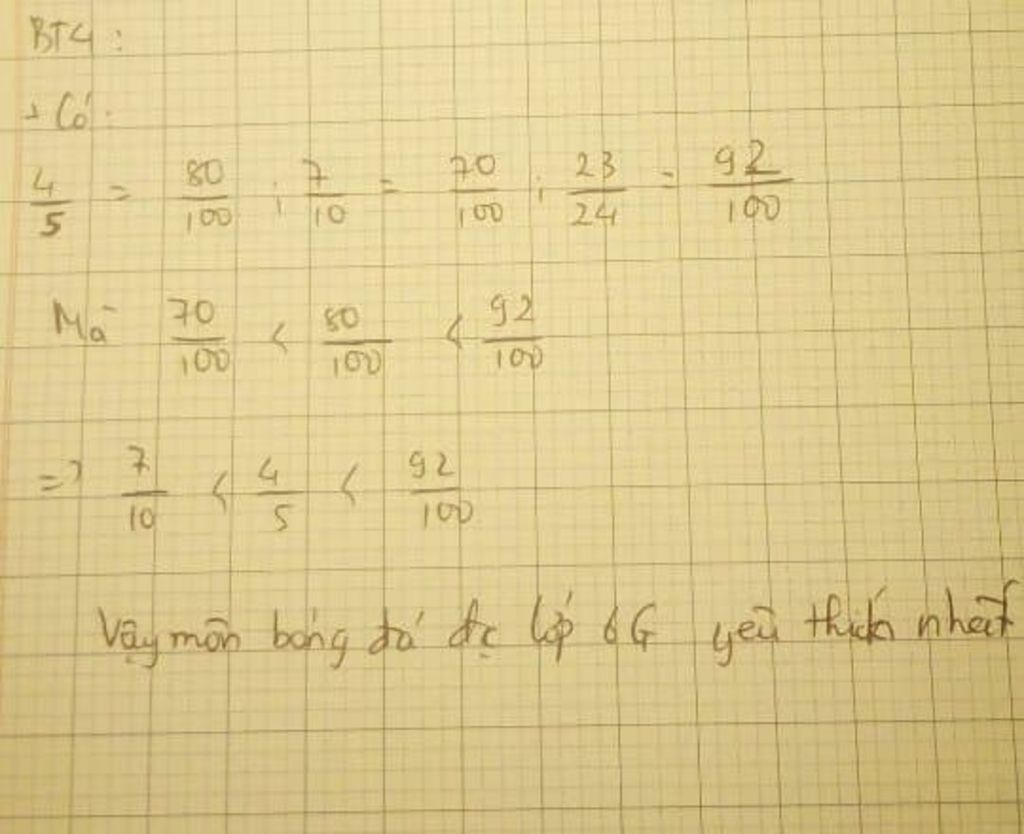 BT4:
+ Có:
4/5 = 80/100 ; 7/10 = 70/100 ; 23/24 = 92/100
Mà 70/100 < 80/100 < 92/100
=> 7/10 < 4/5 < 92/100
Vậy môn bóng đá đc lớp 6G yêu thích nhất